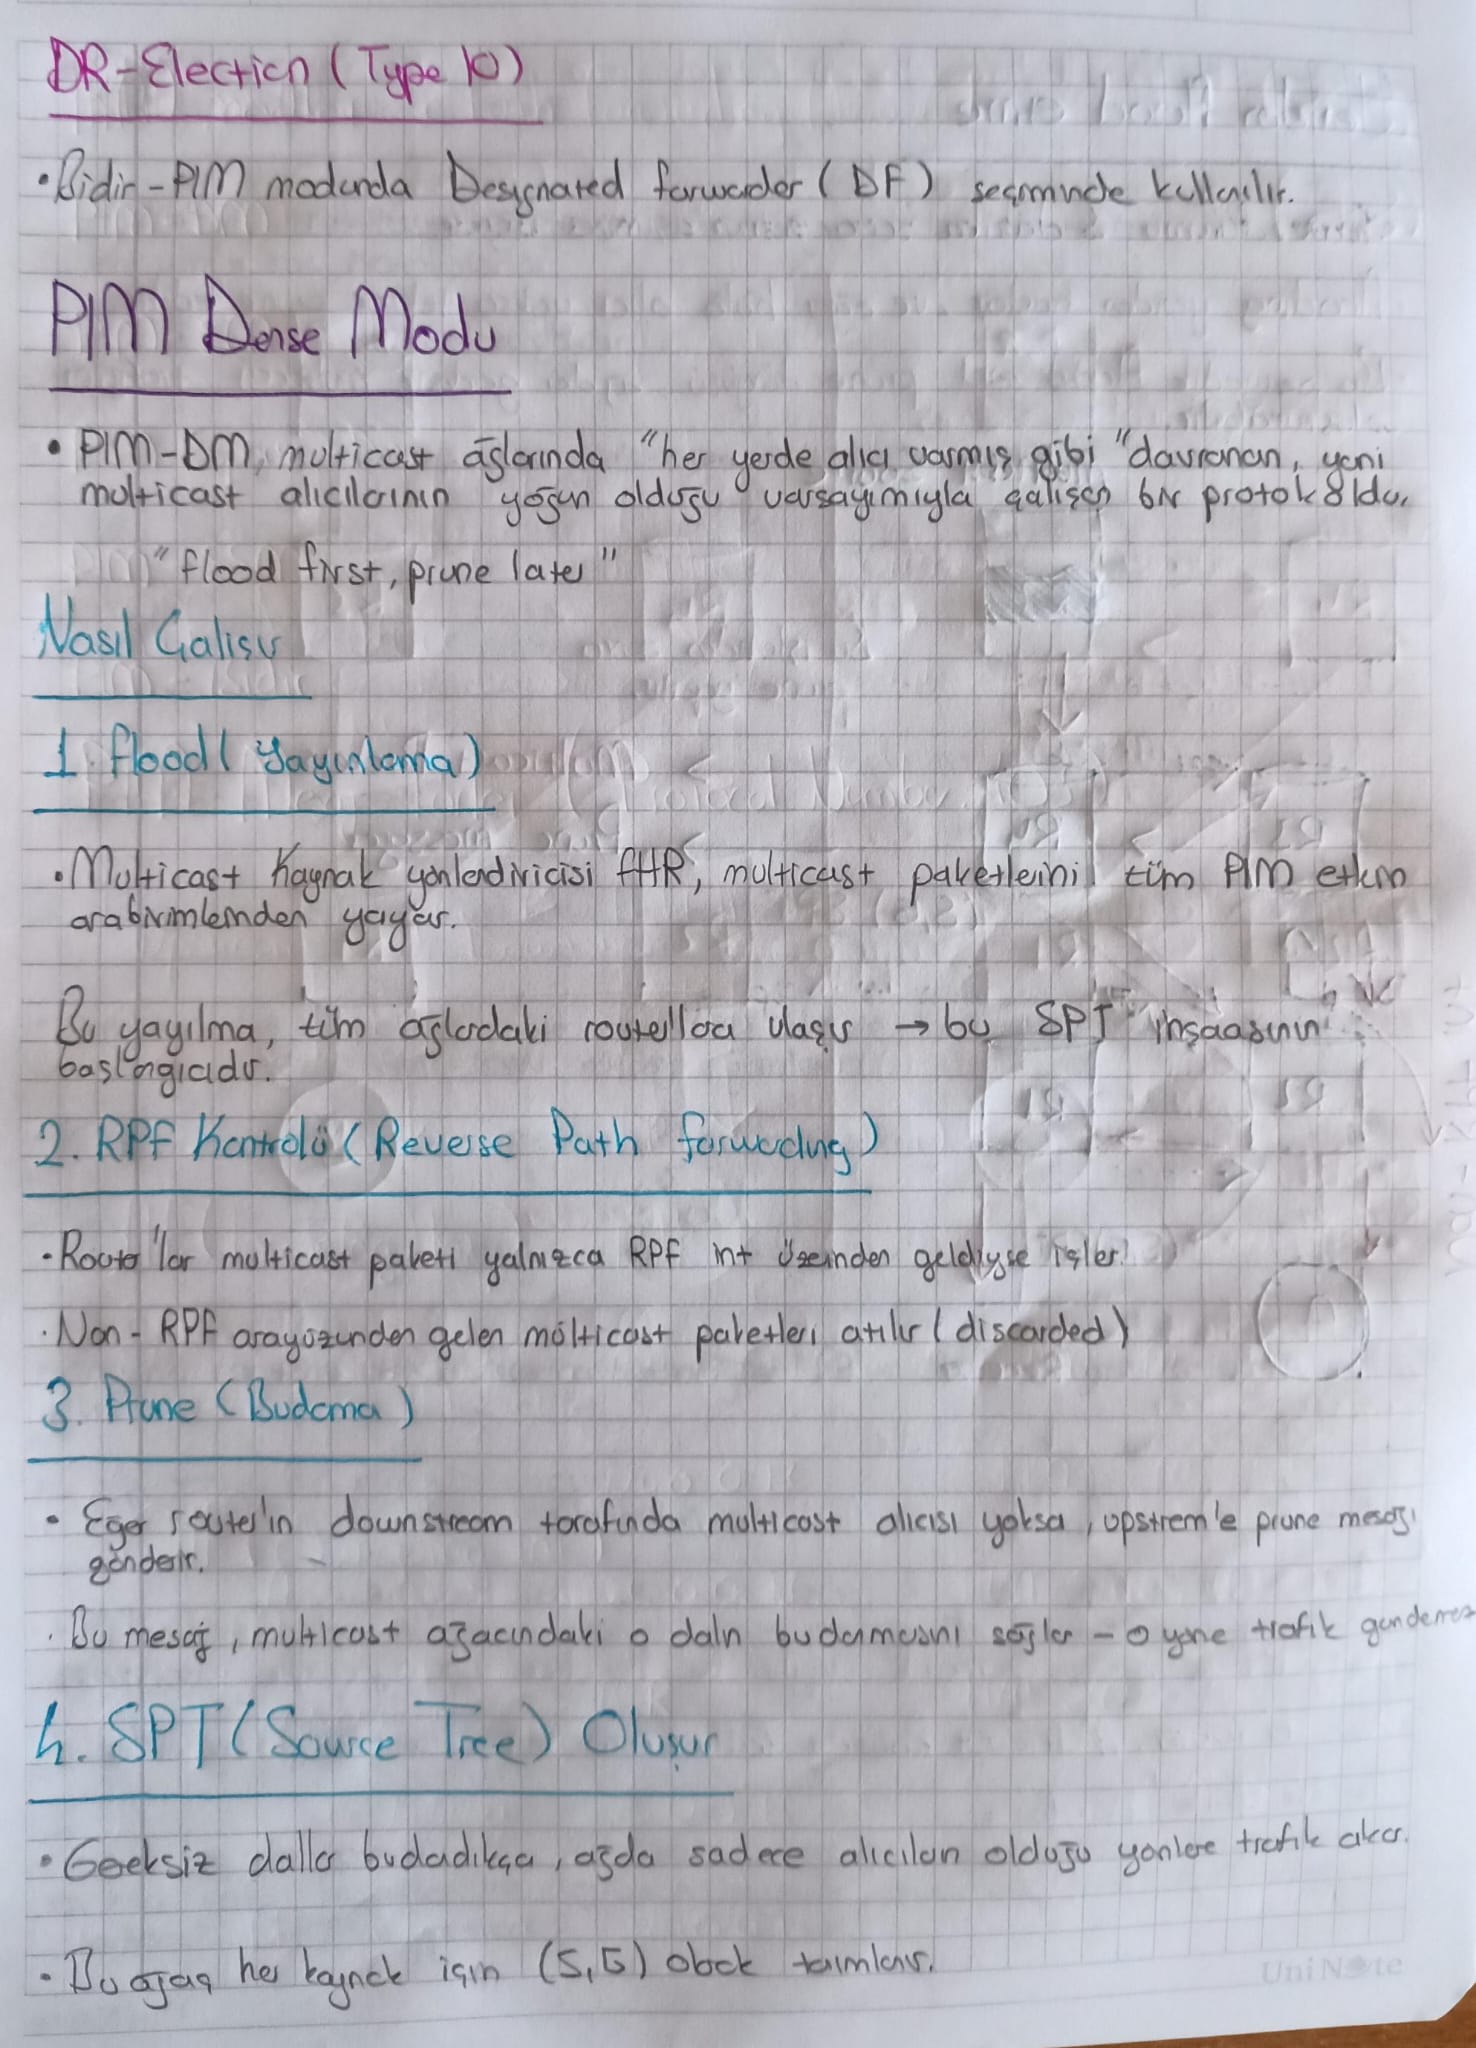 DR-Election (Type 10)
• Bidir-PIM modunda Designated forwarder (DF) seçiminde kullanılır.
PIM Dense Modu
• PIM-DM, multicast ağlarında "her yerde alıcı varmış gibi" davranan, yani
multicast alıcılarının yoğun olduğu varsayımıyla çalışan bir protokoldu.
"flood first, prune later"
Nasıl Çalışır
1. flood ( Yayınlama)
• Multicast Kaynak yönlendiricisi FHR, multicast paketlerini tüm PIM etkin
arabirimlerinden yayar.
Bu yayılma, tüm ağlardaki routerlara ulaşır → bu SPT inşaasının
başlangıcıdır.
2. RPF Kontrolü (Reverse Path forwarding)
• Router'lar multicast paketi yalnızca RPF int üzerinden geldiyse işler.
• Non-RPF arayüzünden gelen multicast paketleri atılır (discarded)
3. Prune (Budama)
• Eğer router'ın downstream tarafında multicast alıcısı yoksa, upstrem'e prune mesajı
gönderir.
• Bu mesaj, multicast ağacındaki o dalın budanmasını sağlar - o yöne trafik göndermez
4. SPT (Source Tree) Oluşur
• Gereksiz dallar budadıkça, ağda sadece alıcıların olduğu yönlere trafik akar.
• Bu ağaç her kaynak için (S,G) olarak tanımlanır.
UniNote